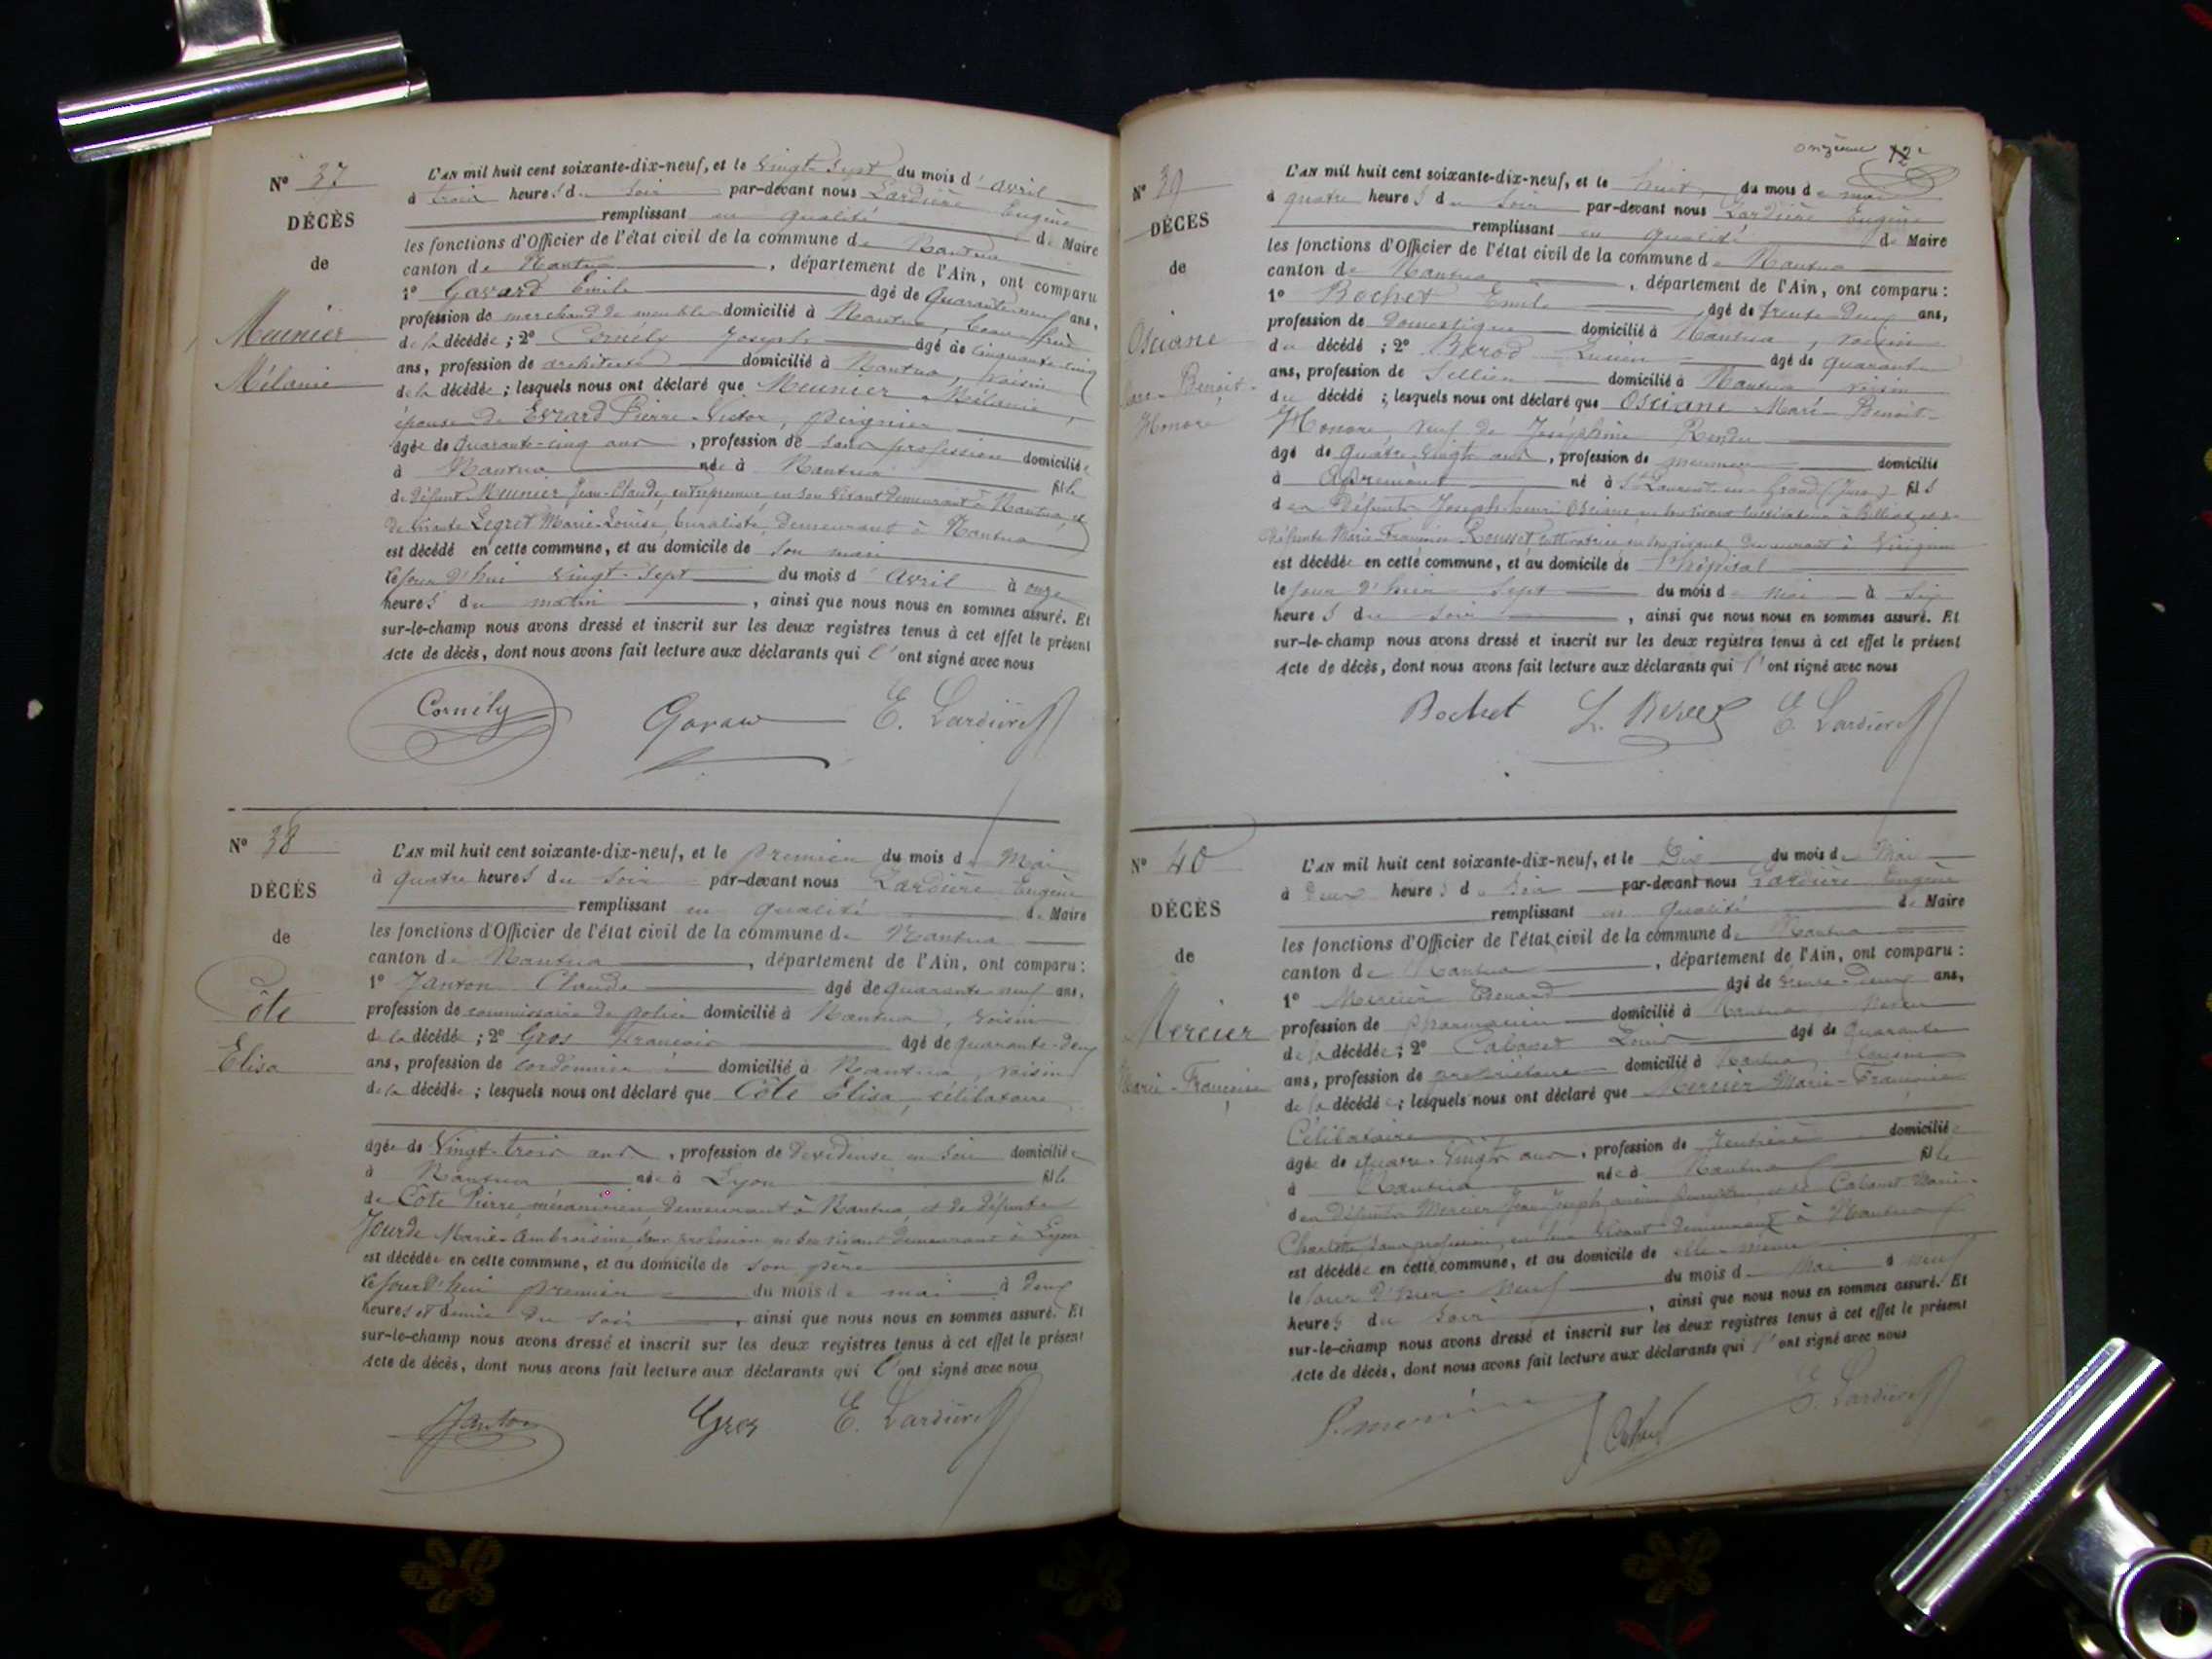 N° 37
DÉCÈS
de
Meunier
Mélanie
L'AN mil huit cent soixante-dix-neuf, et le vingt-sept du mois d'avril
à trois heures du soir par-devant nous Lardière Eugène
remplissant en qualité de Maire
les fonctions d'Officier de l'état civil de la commune de Nantua
canton de Nantua, département de l'Ain, ont comparu
1° Gavard Emile âgé de quarante-neuf ans,
profession de marchand de meubles domicilié à Nantua, beau-frère
de la décédée ; 2° Cornély Joseph âgé de cinquante-cinq
ans, profession de architecte domicilié à Nantua, voisin
de la décédée ; lesquels nous ont déclaré que Meunier Mélanie,
épouse de Evrard Pierre-Victor, peignier
âgée de quarante-cinq ans, profession de sans profession domiciliée
à Nantua née à Nantua fille
de défunt Meunier Jean-Claude, entrepreneur, en son vivant demeurant à Nantua, et
de vivante Legret Marie-Louise, buraliste, demeurant à Nantua
est décédé en cette commune, et au domicile de son mari
le jour d'hui vingt-sept du mois d'avril à onze
heures du matin, ainsi que nous nous en sommes assuré. Et
sur-le-champ nous avons dressé et inscrit sur les deux registres tenus à cet effet le présent
Acte de décès, dont nous avons fait lecture aux déclarants qui l'ont signé avec nous
Cornély E. Lardière
N° 38
DÉCÈS
de
Côte
Elisa
L'AN mil huit cent soixante-dix-neuf, et le premier du mois de Mai
à quatre heures du soir par-devant nous Lardière Eugène
remplissant en qualité de Maire
les fonctions d'Officier de l'état civil de la commune de Nantua
canton de Nantua, département de l'Ain, ont comparu :
1° Janton Claude âgé de quarante-neuf ans,
profession de commissaire de police domicilié à Nantua, voisin
de la décédée ; 2° Gros François âgé de quarante-deux
ans, profession de cordonnier domicilié à Nantua, voisin
de la décédée ; lesquels nous ont déclaré que Côte Elisa, célibataire
âgée de vingt-trois ans, profession de dévideuse en soie domiciliée
à Nantua née à Lyon fille
de Côte Pierre, mécanicien, demeurant à Nantua, et de défunte
Jourde Marie-Ambroisine, sans profession, en son vivant demeurant à Lyon
est décédée en cette commune, et au domicile de son père
le jour d'hui premier du mois de mai à deux
heures et demie du soir, ainsi que nous nous en sommes assuré. Et
sur-le-champ nous avons dressé et inscrit sur les deux registres tenus à cet effet le présent
Acte de décès, dont nous avons fait lecture aux déclarants qui l'ont signé avec nous
Janton Gros E. Lardière
onzième 12e
N° 39
DÉCÈS
de
Osciane
Benoit-
Honoré
L'AN mil huit cent soixante-dix-neuf, et le huit du mois de mai
à quatre heures du soir par-devant nous Lardière Eugène
remplissant en qualité de Maire
les fonctions d'Officier de l'état civil de la commune de Nantua
canton de Nantua, département de l'Ain, ont comparu :
1° Bochet Emile âgé de trente-deux ans,
profession de domestique domicilié à Nantua, voisin
du décédé ; 2° Berod Lucien âgé de quarante
ans, profession de sellier domicilié à Nantua voisin
du décédé ; lesquels nous ont déclaré que Osciane Marc-Benoit-
Honoré, veuf de Joséphine Rendu
âgé de quatre-vingts ans, profession de meunier domicilié
à Apremont né à St Laurent-en-Grand (Jura) fils
des défunts Joseph-Henri Osciane en son vivant cultivateur à et de
défunte Marie-Françoise Rousset cultivatrice en son vivant demeurant à
est décédée en cette commune, et au domicile de l'hôpital
le jour d'hier sept du mois de mai à six
heures du soir, ainsi que nous nous en sommes assuré. Et
sur-le-champ nous avons dressé et inscrit sur les deux registres tenus à cet effet le présent
Acte de décès, dont nous avons fait lecture aux déclarants qui l'ont signé avec nous
Bochet E. Lardière
N° 40
DÉCÈS
de
Mercier
Marie-Françoise
L'AN mil huit cent soixante-dix-neuf, et le dix du mois de Mai
à deux heures du soir par-devant nous Lardière Eugène
remplissant en qualité de Maire
les fonctions d'Officier de l'état civil de la commune de Nantua
canton de Nantua, département de l'Ain, ont comparu :
1° Mercier Edouard âgé de trente-deux ans,
profession de pharmacien domicilié à Nantua, neveu
de la décédée ; 2° Cabanet Louis âgé de quarante
ans, profession de propriétaire domicilié à Nantua, cousin
de la décédée ; lesquels nous ont déclaré que Mercier Marie-Françoise
célibataire
âgée de quatre-vingts ans, profession de rentière domiciliée
à Nantua née à Nantua fille
des défunts Mercier Jean-Joseph, ancien et de Cabanet Marie-
Charlotte, sans profession, en leur vivant demeurant à Nantua
est décédée en cette commune, et au domicile de elle-même
le jour d'hier neuf du mois de Mai à neuf
heures du soir, ainsi que nous nous en sommes assuré. Et
sur-le-champ nous avons dressé et inscrit sur les deux registres tenus à cet effet le présent
Acte de décès, dont nous avons fait lecture aux déclarants qui l'ont signé avec nous
E. Lardière